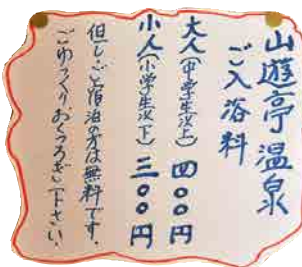 山遊亭温泉
ご入浴料
大人(中学生以上)四〇〇円
小人(小学生以下)三〇〇円
但しご宿泊の方は無料です。
ごゆっくりおくつろぎ下さい。